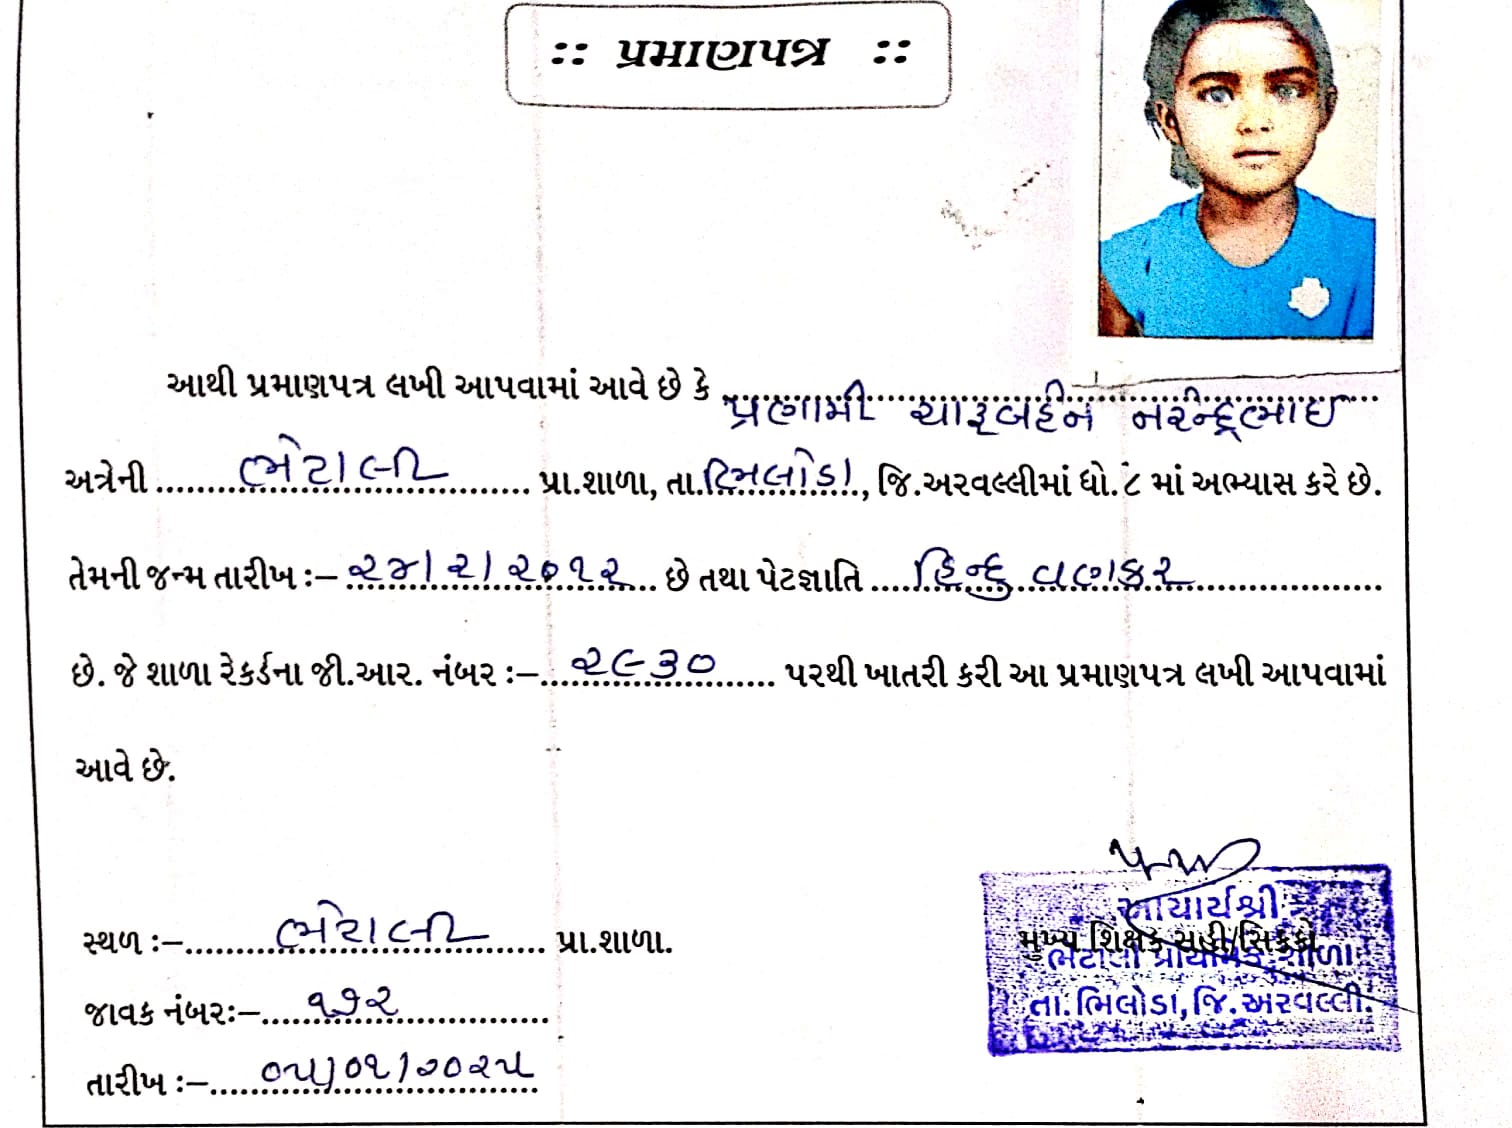 :: પ્રમાણપત્ર ::
આથી પ્રમાણપત્ર લખી આપવામાં આવે છે કે પ્રણામી ચારૂબહેન નરેન્દ્રભાઈ
અત્રેની ભેટાલી પ્રા.શાળા, તા. ભિલોડા, જિ.અરવલ્લીમાં ધો. ૮ માં અભ્યાસ કરે છે.
તેમની જન્મ તારીખ :– ૨૪/૨/૨૦૧૨ છે તથા પેટજ્ઞાતિ હિન્દુ વણકર
છે. જે શાળા રેકર્ડના જી.આર. નંબર :– ૨૯૩૦ પરથી ખાતરી કરી આ પ્રમાણપત્ર લખી આપવામાં
આવે છે.
આચાર્યશ્રી
મુખ્ય શિક્ષક સહી/સિક્કો
ભેટાલી પ્રાથમિક શાળા
તા. ભિલોડા, જિ. અરવલ્લી.
સ્થળ :– ભેટાલી પ્રા.શાળા.
જાવક નંબર:– ૧૭૨
તારીખ :– ૦૫/૦૧/૨૦૨૫